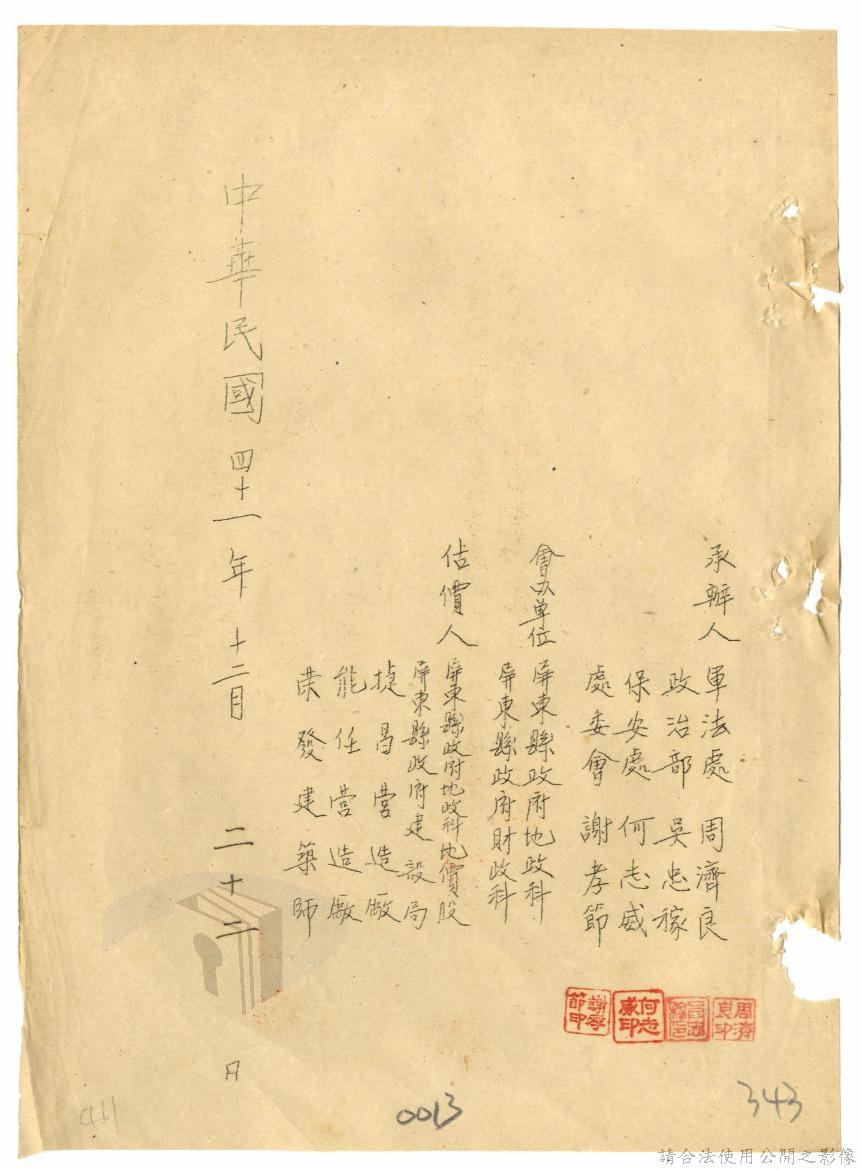 承辦人 軍法處 周濟良
政治部 吳忠稼
保安處 何志威
處委會 謝孝節
會以單位 屏東縣政府地政科
屏東縣政府財政科
估價人 屏東縣政府地政科地價股
屏東縣政府建設局
捷昌营造廠
能任营造廠
荣發建築師
中華民國四十一年十二月二十二日
周濟良印
何志威印
謝孝節印
0013
343
請合法使用公開之影像